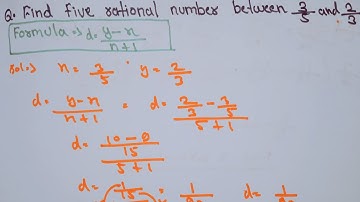 Q. Find five rational number between 3/5 and 2/3
Formula => d = y-x / n+1
Sol => x = 3/5 , y = 2/3
d = y-x / n+1 = d = 2/3 - 3/5 / 5+1
d = 10-9 / 15 / 5+1
d = 1/15
d =